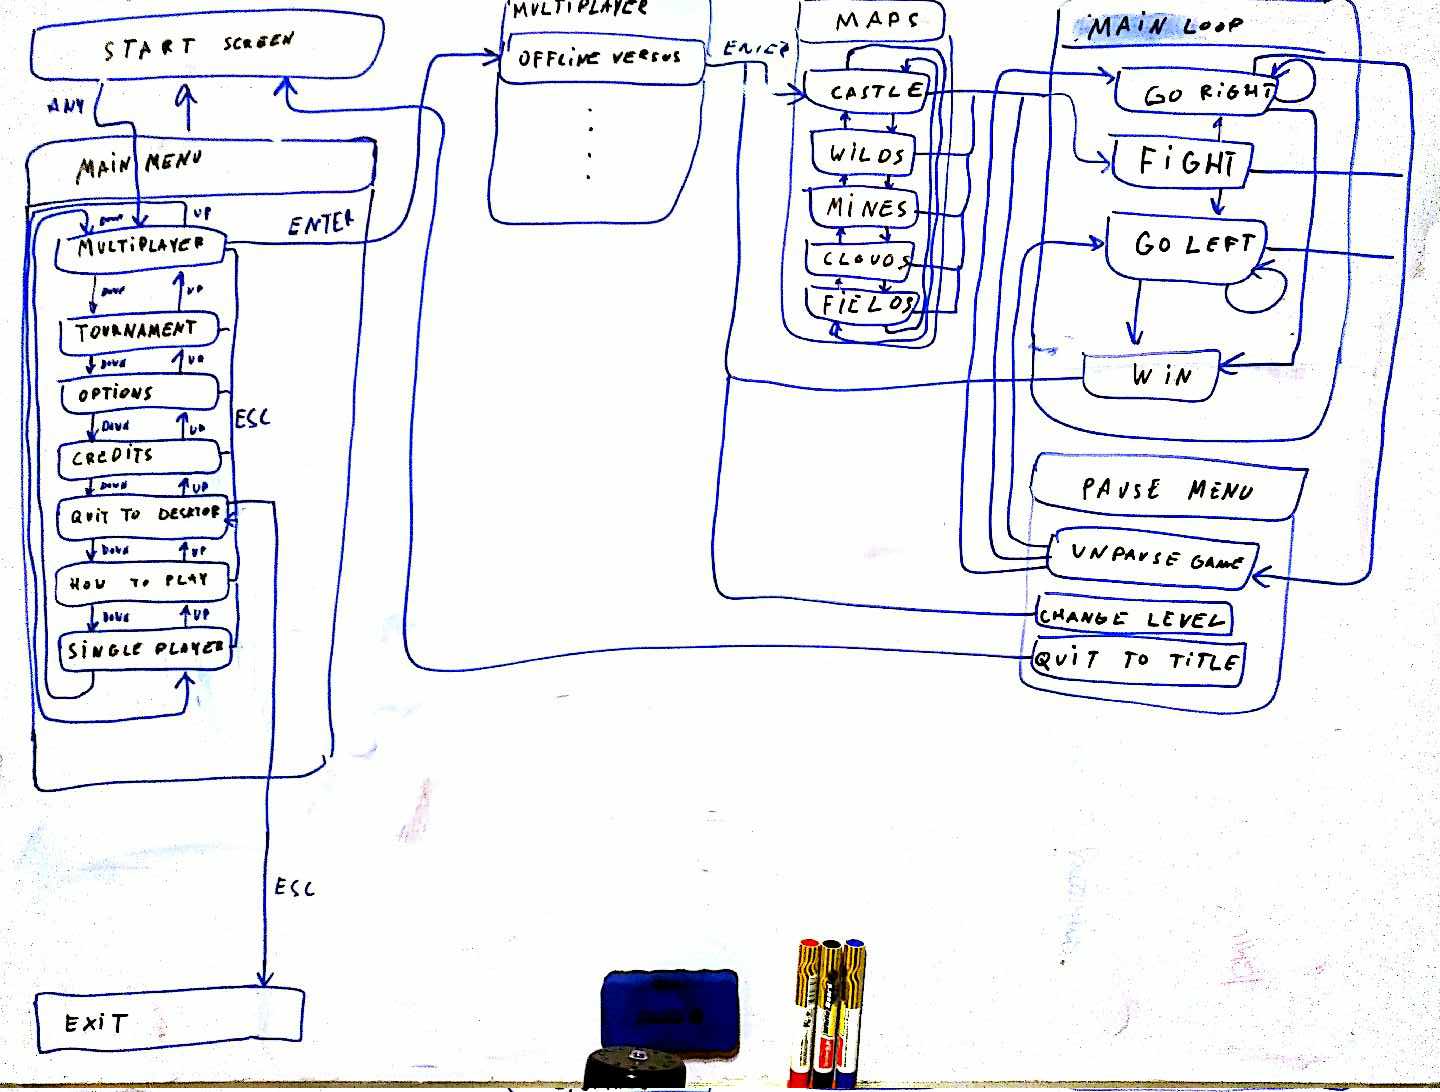 START SCREEN
ANY
MAIN MENU
DOWN
UP
MULTIPLAYER
DOWN
UP
TOURNAMENT
DOWN
UP
OPTIONS
DOWN
UP
CREDITS
DOWN
UP
QUIT TO DESKTOP
DOWN
UP
HOW TO PLAY
DOWN
UP
SINGLE PLAYER
ENTER
ESC
ESC
EXIT
MULTIPLAYER
OFFLINE VERSUS
ENTER
MAPS
CASTLE
WILDS
MINES
CLOUDS
FIELDS
MAIN LOOP
GO RIGHT
FIGHT
GO LEFT
WIN
PAUSE MENU
UNPAUSE GAME
CHANGE LEVEL
QUIT TO TITLE